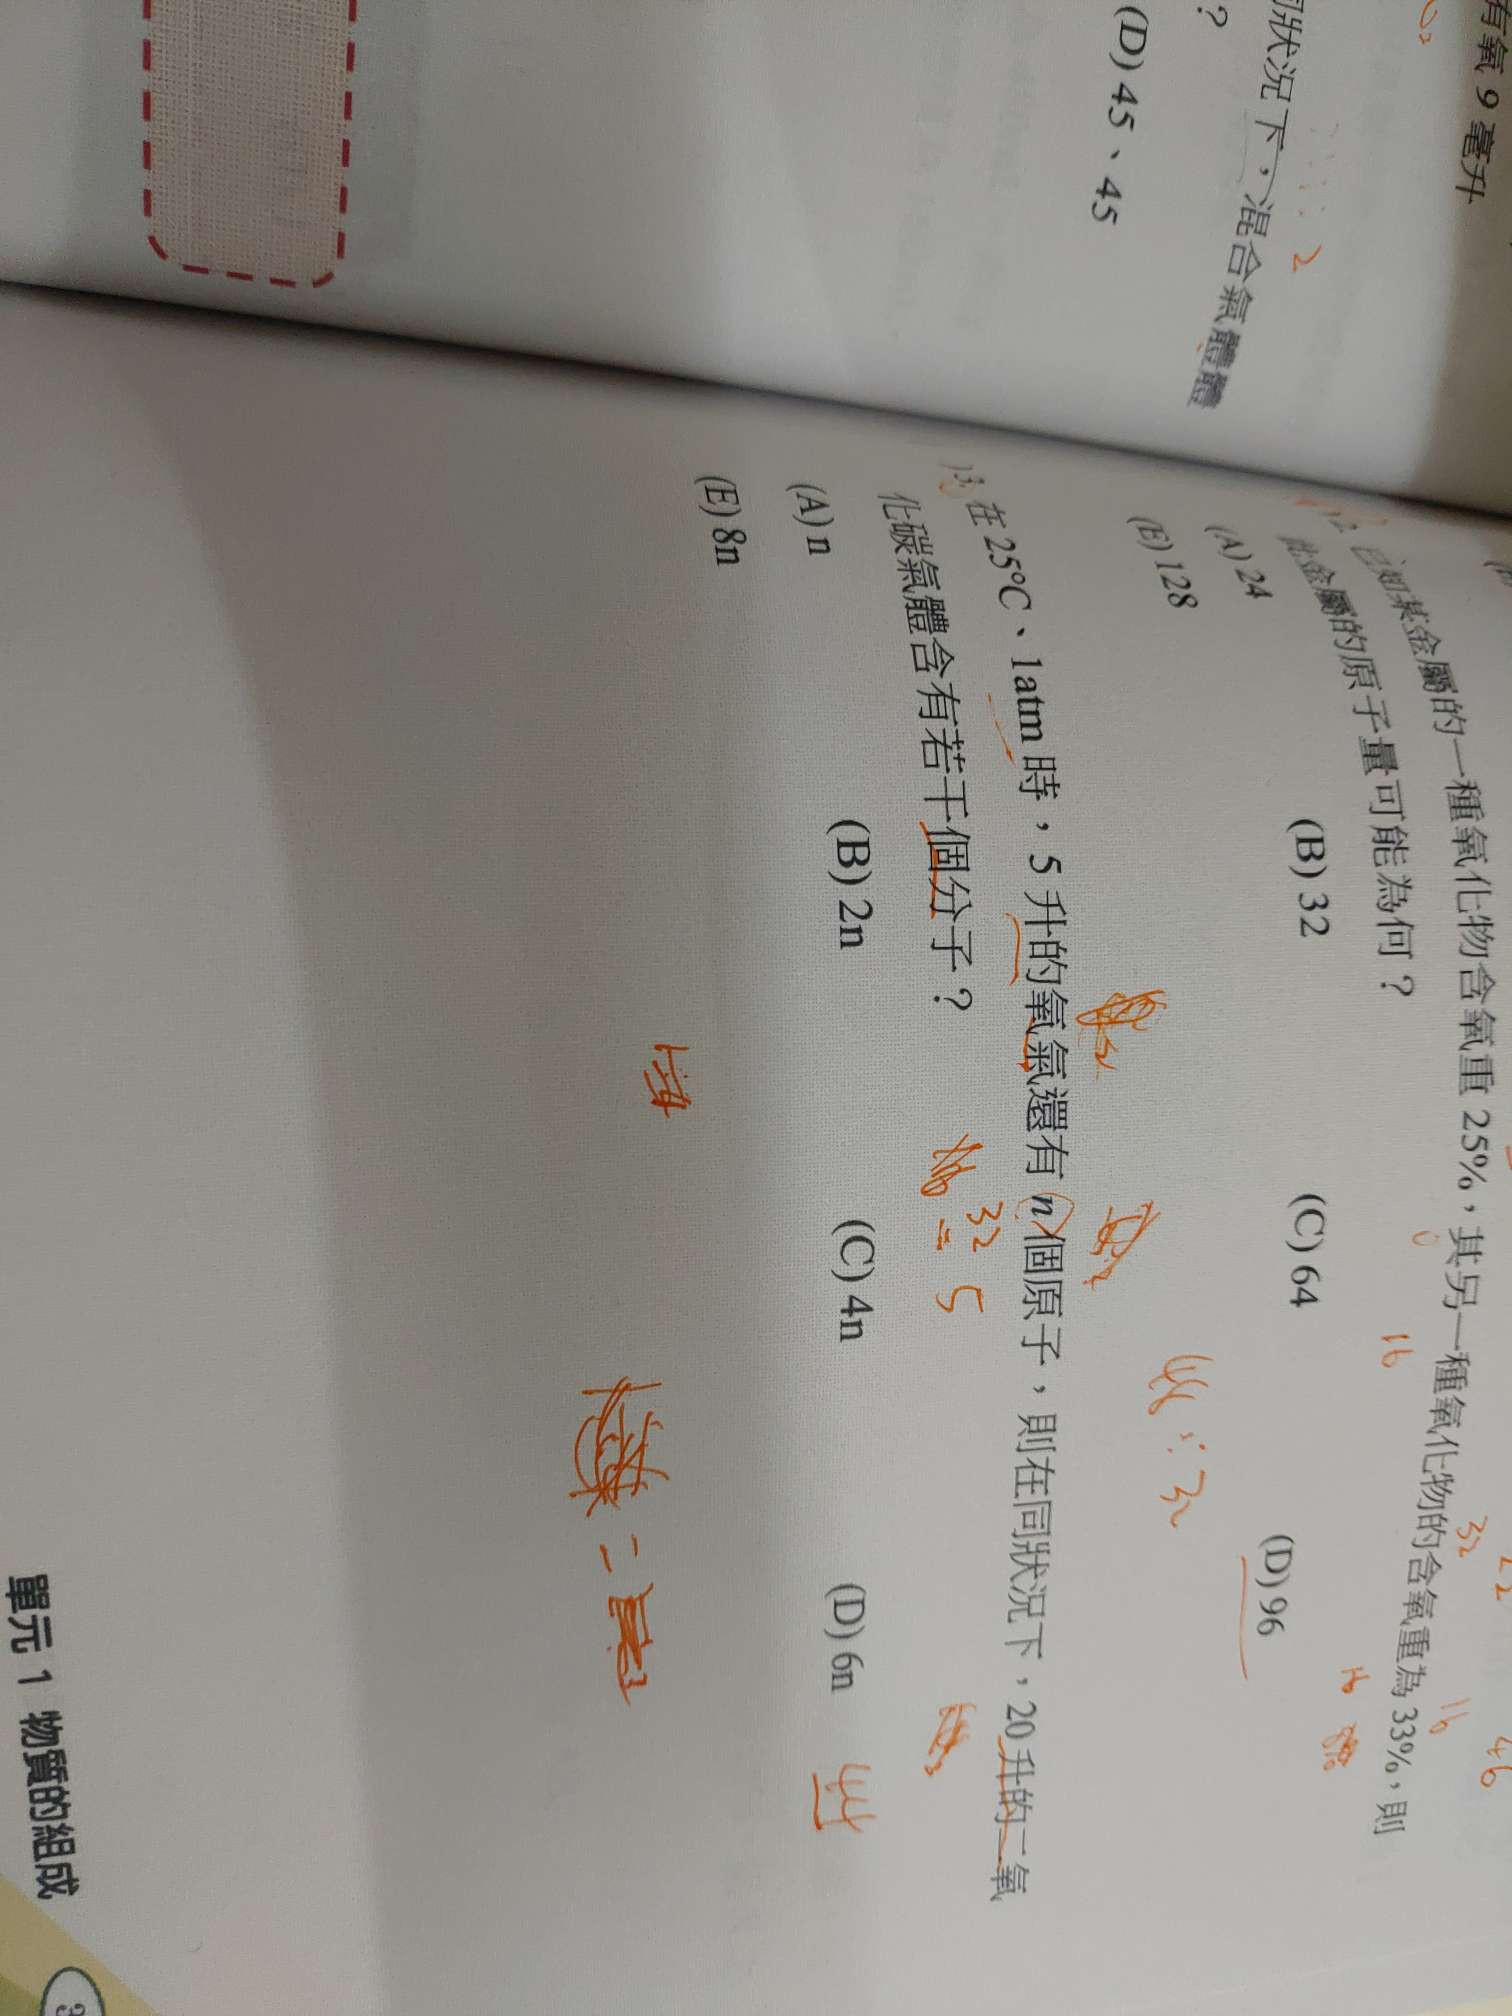 有氧 9 毫升
狀況下，混合氣體體
？
(D) 45、45
已知某金屬的一種氧化物含氧重 25%，其另一種氧化物的含氧重為 33%，則
此金屬的原子量可能為何？
(A) 24 (B) 32 (C) 64 (D) 96
(E) 128
48 : 32
13. 在 25°C、1atm 時，5 升的氧氣還有 n 個原子，則在同狀況下，20 升的二氧
化碳氣體含有若干個分子？
32
= 5
(A) n (B) 2n (C) 4n (D) 6n
44
(E) 8n
單元 1 物質的組成